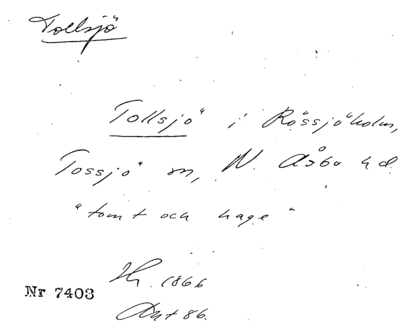 Tollsjö
Tollsjö i Rössjöholm,
Tossjö sn, N. Åsbo hd.
"tomt och hage"
Hr. 1866
Nr 7403
Dat 86.